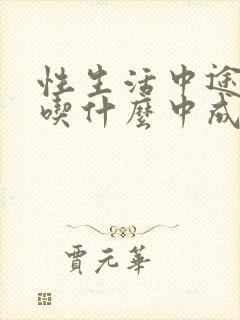 性生活中途
喫什麼中成
賈元華